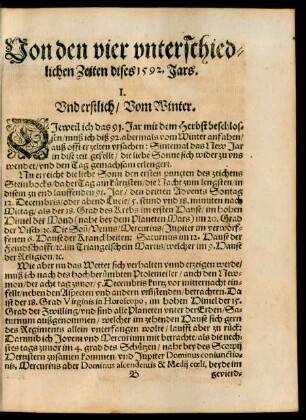 Von den vier vnterschied-
lichen Zeiten dises 1592. Jars.
I.
Vnd erstlich / Vom Winter.
Jeweil ich das 91. Jar mit dem Herbst beschlos-
sen / muß ich diß 92. abermals vom Winter anfahen /
auß offt erzelten vrsachen: Sintemal das New Jar
in dise zeit gefellt / die liebe Sonne sich wider zu vns
wendet / vnd den Tag gemachsam erlengert.
Nu erreicht die liebe Sonn den ersten puncten des zeichens
Steinbocks / da der Tag am kürtzten / die Nacht zum lengsten / in
disem zu end lauffenden 91. Jar / des dritten Advents Sontag
12. Decembris / oder abend Luciæ / 5. stund vnd 18. minuten nach
Mittag / als der 18. Grad des Krebs im ersten Hauß / im hohen
Himel der Mond (nahe bey dem Planeten Mars) im 20. Grad
der Visch
Die Sonn / Venus / Mercurius / Jupiter im verworf-
fenen 6. Hauß der Kranckheiten: Saturnus im 12. Hauß der
Feindschafft /
im Triangelschein Martis / welcher im 9. Hauß
der Religion /
Wie aber nun das Wetter sich verhalten vnnd erzeigen werde /
muß ich nach des hochberümbten Ptolemei ler / auch den New-
mon / der acht tag zuuor / 5. Decembris kurtz vor mitternacht ein-
fellt / neben den Aspecten vnd andern vmbstenden betrachten. Da
ist der 18. Grad Virginis in Horoscopo, im hohen Himel der 15.
Grad der Zwilling / vnd sind alle Planeten vnter der Erden / Sa-
turnum außgenommen / welcher im zehenden Hauß sich gern
des Regiments allein vnterfangen wolte / laufft aber zu rück:
Darumb ich Jovem vnd Mercurium mit betrachte / als die nech-
stes tags zuuor im 4. grad des Schützen / nahe bey des Scorpij
Hertzstern zusamen kommen / vnd Jupiter Dominus conjunctio-
nis, Mercurius aber Dominus ascendentis & Medij cœli, beyde im
B
gevierd-